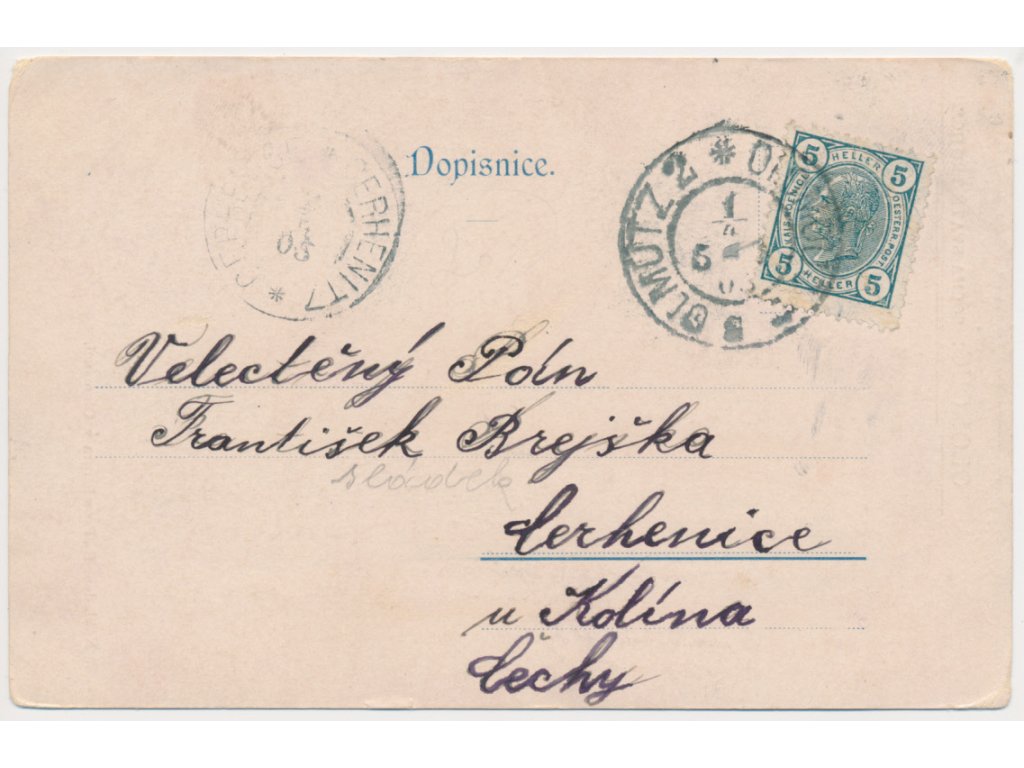 Dopisnice.
CERHENITZ *
03
OLMÜTZ 2 *
1
5
5 HELLER 5
KAIS. KOENIGL. OESTERR. POST.
5 HELLER 5
Velectěný Pán
František Brejška
sládek
Cerhenice
u Kolína
Čechy